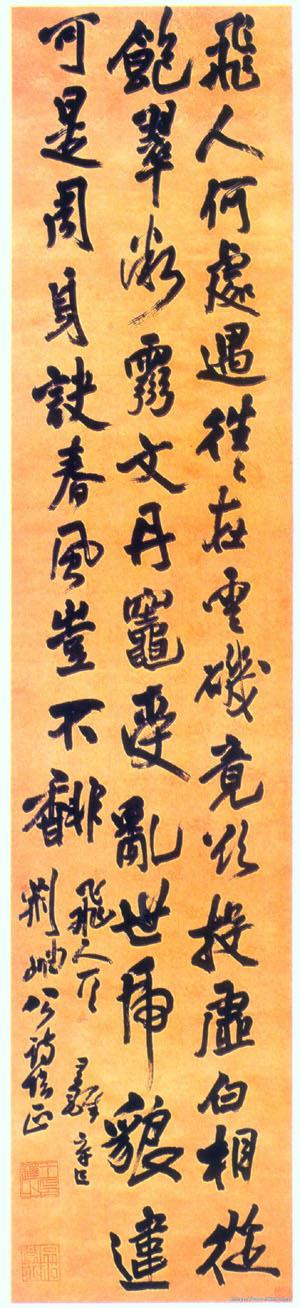 飛人何處遇往〻在雲磯竟欲投虛白相從
飽翠微霧文丹竈 亂世 貌違
可是周身訣春風豈不馡
飛人 王鐸 辛巳
公詩 正